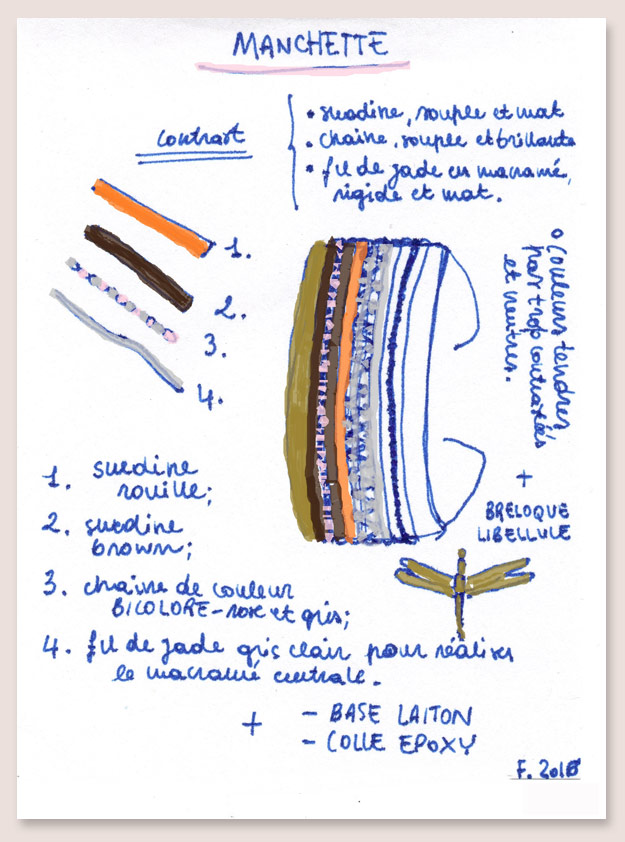 MANCHETTE
contrast
• suedine, souple et mat
• chaine, souple et brillante
• fil de jade en macramé,
rigide et mat.
1.
2.
3.
4.
° couleurs tendres
pas trop contrastées
et neutres.
+
BRELOQUE
LIBELLULE
1. suedine
rouille;
2. suedine
brown;
3. chaine de couleur
BICOLORE - rose et gris;
4. fil de jade gris clair pour réaliser
le macramé centrale.
+ - BASE LAITON
- COLLE EPOXY